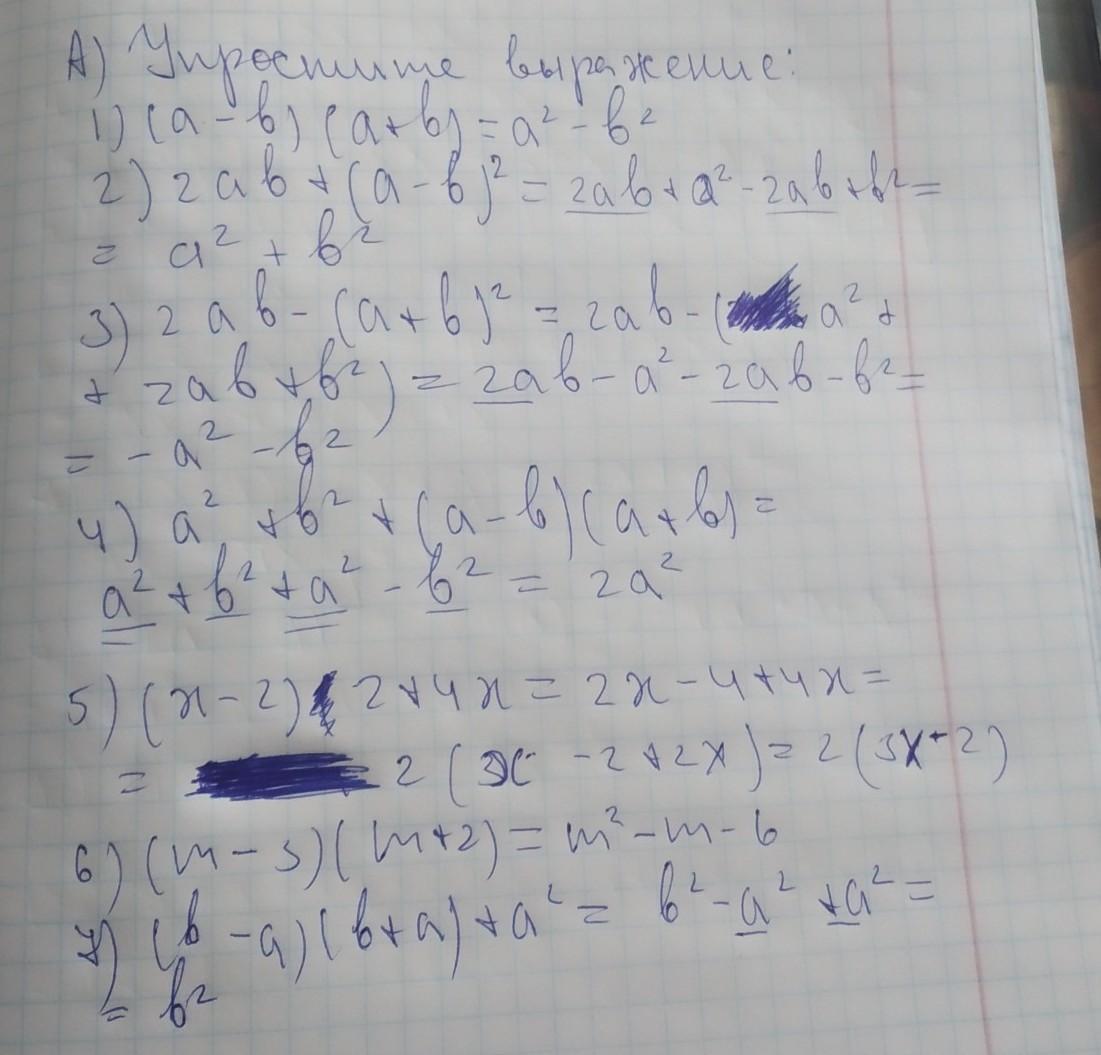 А) Упростите выражение:
1) (a - b) (a + b) = a² - b²
2) 2ab + (a - b)² = 2ab + a² - 2ab + b² =
= a² + b²
3) 2ab - (a + b)² = 2ab - ( a² +
+ 2ab + b²) = 2ab - a² - 2ab - b² =
= - a² - b²
4) a² + b² + (a - b)(a + b) =
a² + b² + a² - b² = 2a²
5) (x - 2) 2 + 4x = 2x - 4 + 4x =
= 2 (x - 2 + 2x) = 2 (3x - 2)
6) (m - 3)(m + 2) = m² - m - 6
7) (b - a)(b + a) + a² = b² - a² + a² =
= b²